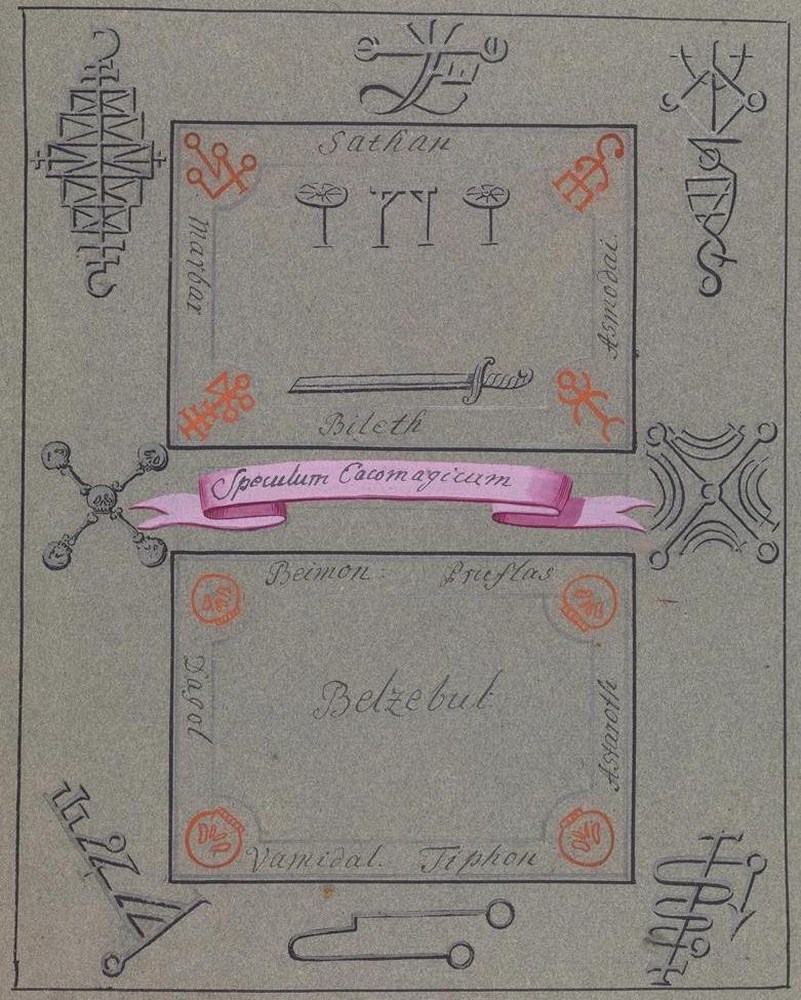 Sathan
Marbar
Asmodai.
Bileth
Speculum Cacomagicum
Beimon: Pruflas
Dagol
Belzebut
Astaroth
Vamidal. Tiphon